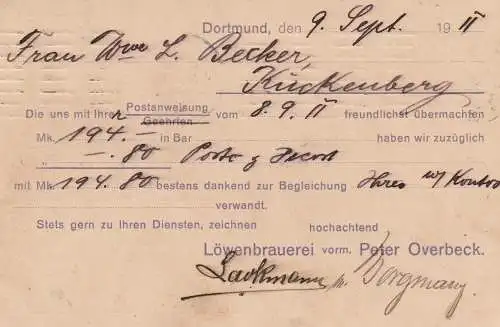 Dortmund, den 9. Sept. 1911
Frau Wwe L. Becker,
Kückenberg
Die uns mit Ihrer Postanweisung vom 8. 9. 11 freundlichst übermachten
Geehrten
Mk. 194.— in Bar haben wir zuzüglich
" —. 80 Porto &
mit Mk. 194.80 bestens dankend zur Begleichung Ihres w/ Kontos
verwandt.
Stets gern zu Ihren Diensten, zeichnen hochachtend
Löwenbrauerei vorm. Peter Overbeck.